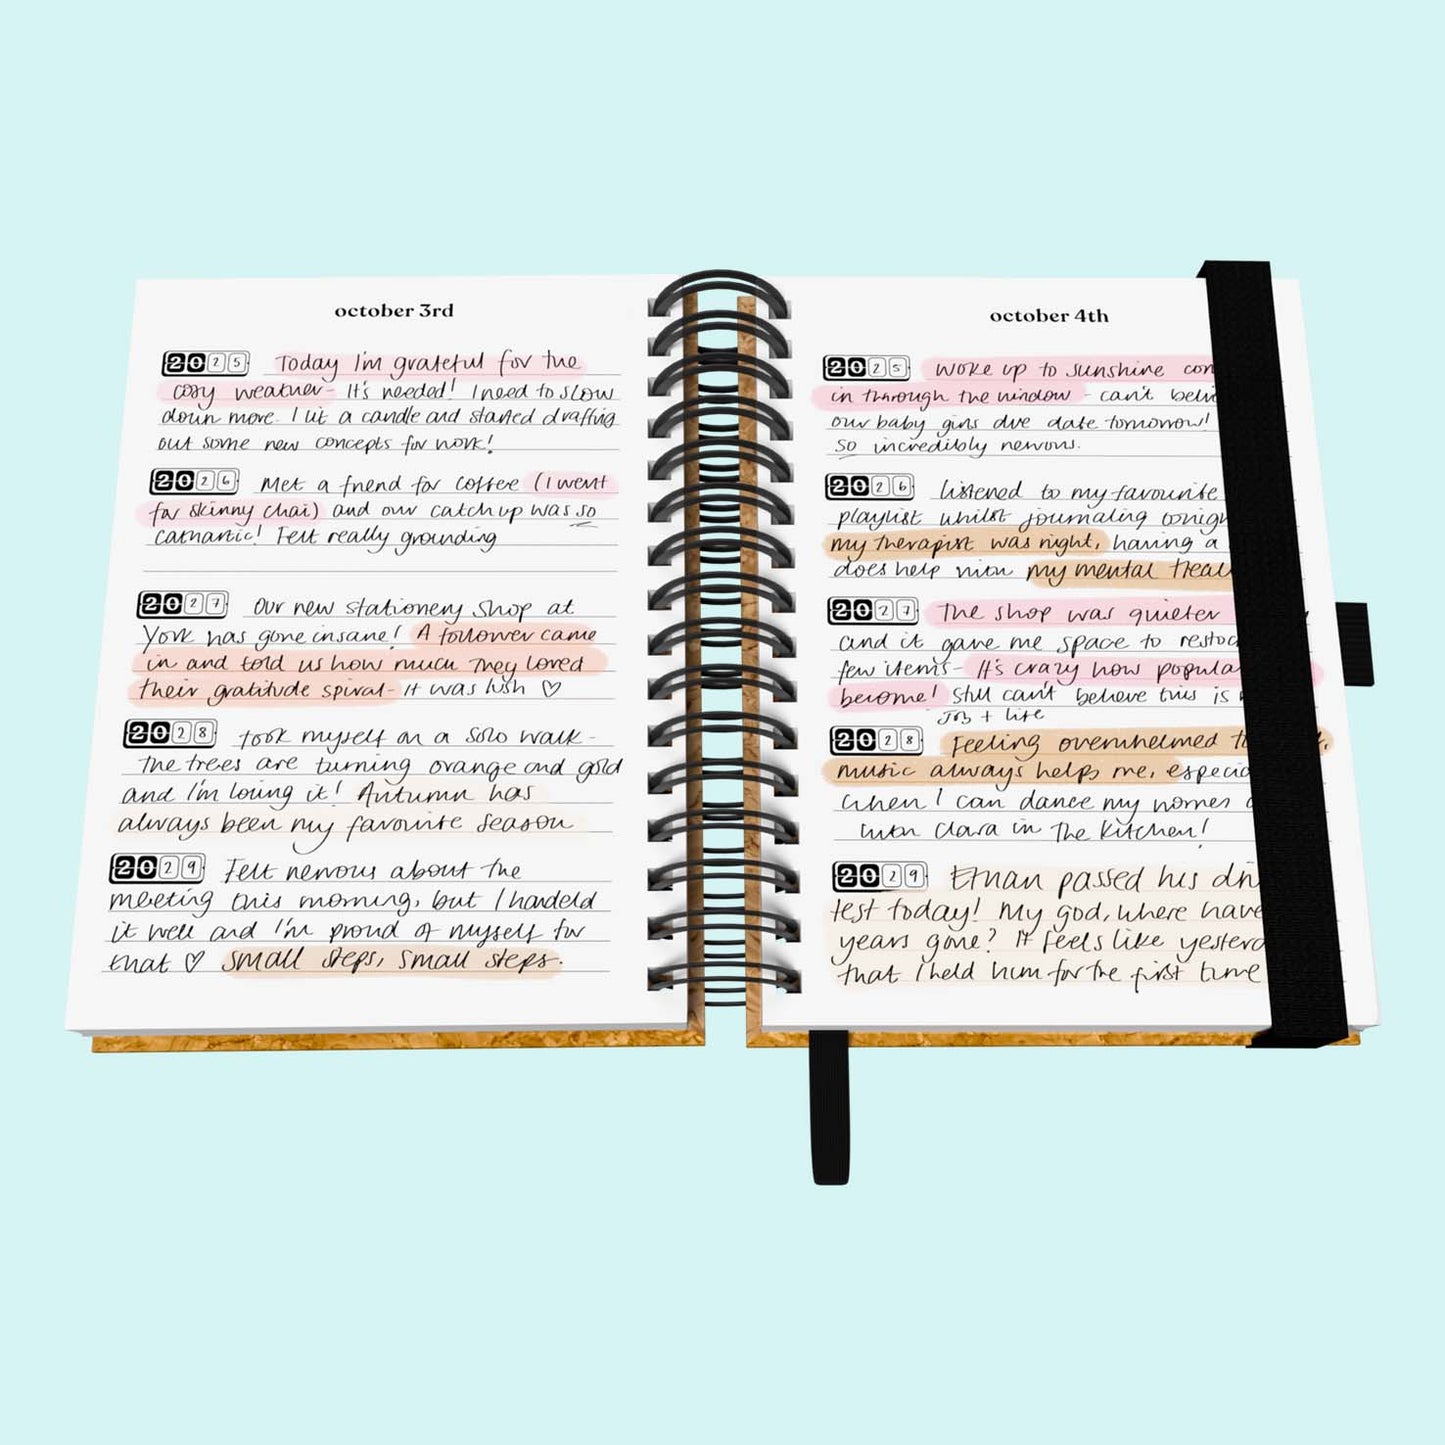 october 3rd
2025 Today I'm grateful for the
cosy weather - It's needed! I need to slow
down more. I lit a candle and started drafting
out some new concepts for work!
2026 Met a friend for coffee (I went
for skinny chai) and our catch up was so
cathartic! Felt really grounding
2027 Our new stationery shop at
York has gone insane! A follower came
in and told us how much they loved
their gratitude spiral - it was lush ♡
2028 took myself on a solo walk -
The trees are turning orange and gold
and I'm loving it! Autumn has
always been my favourite season
2029 Felt nervous about the
meeting this morning, but I handeld
it well and I'm proud of myself for
that ♡ small steps, small steps.
october 4th
2025 Woke up to sunshine
in through the window - can't
our baby girls due date tomorrow!
so incredibly nervous.
2026 listened to my favourite
playlist whilst journaling
my therapist was right, having a
does help with my mental
2027 The shop was quieter
and it gave me space to
few items - It's crazy how
become! Still can't believe this is
Job + life
2028 Feeling overwhelmed
music always helps me,
when I can dance my worries
with Clara in the kitchen!
2029 Ethan passed his
test today! My god, where have
years gone? It feels like
that I held him for the first time